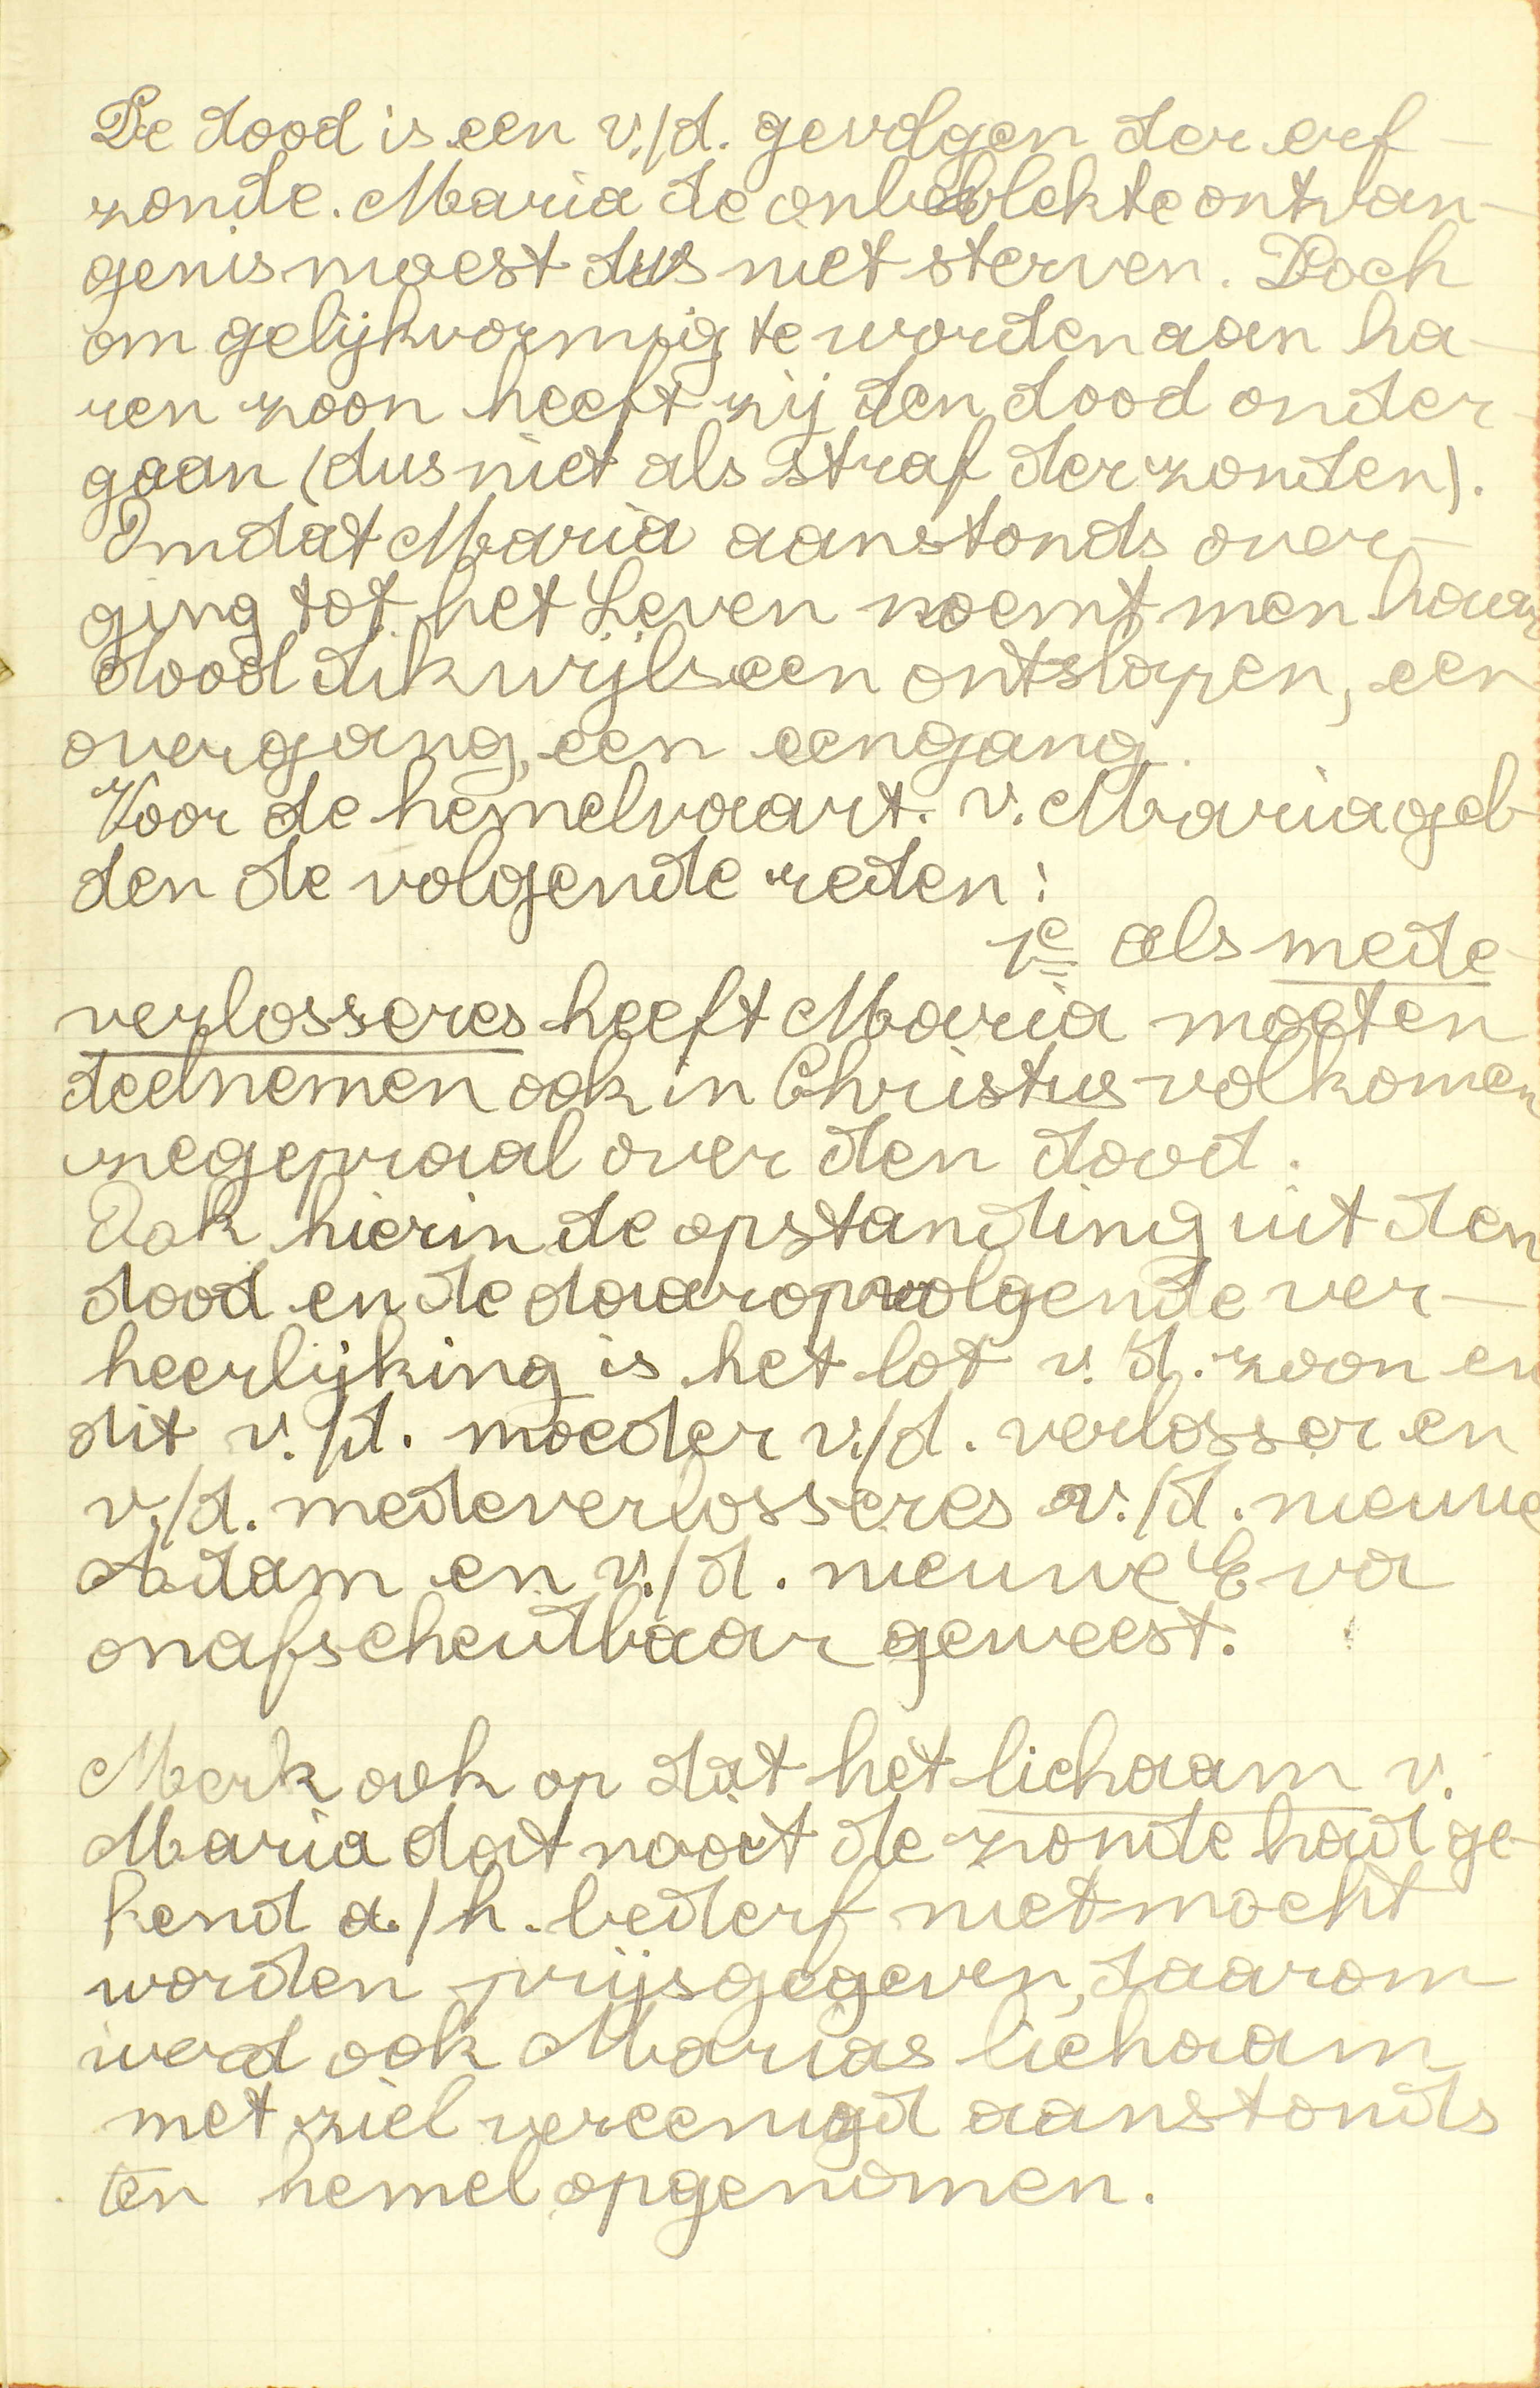 De dood is een v./d. gevolgen der erf-
zonde. Maria de onbevlekte ontvan-
genis moest dus niet sterven. Doch
om gelijkvormig te worden aan ha-
ren zoon heeft zij den dood onder-
gaan (dus niet als straf der zonden).
Omdat Maria aanstonds over-
ging tot het Leven noemt men haar
dood dikwijls een ontslapen, een
overgang, een eengang.
Voor de hemelvaart. v. Maria gel-
den de volgende reden:
1e als mede-
verlosseres heeft Maria moeten
deelnemen ook in Christus volkomen
zegepraal over den dood.
Ook hierin de opstanding uit den
dood en de daaropvolgende ver-
heerlijking is het lot v. d. zoon en
dit v./d. moeder v./d. verlosser en
v./d. medeverlosseres v./d. nieuwe
Adam en v./d. nieuwe Eva
onafscheidbaar geweest.
Merk ook op dat het lichaam v.
Maria dat nooit de zonde had ge-
kend a./h. bederf niet mocht
worden prijsgegeven, daarom
werd ook Marias lichaam
met ziel vereenigd aanstonds
ten hemel opgenomen.